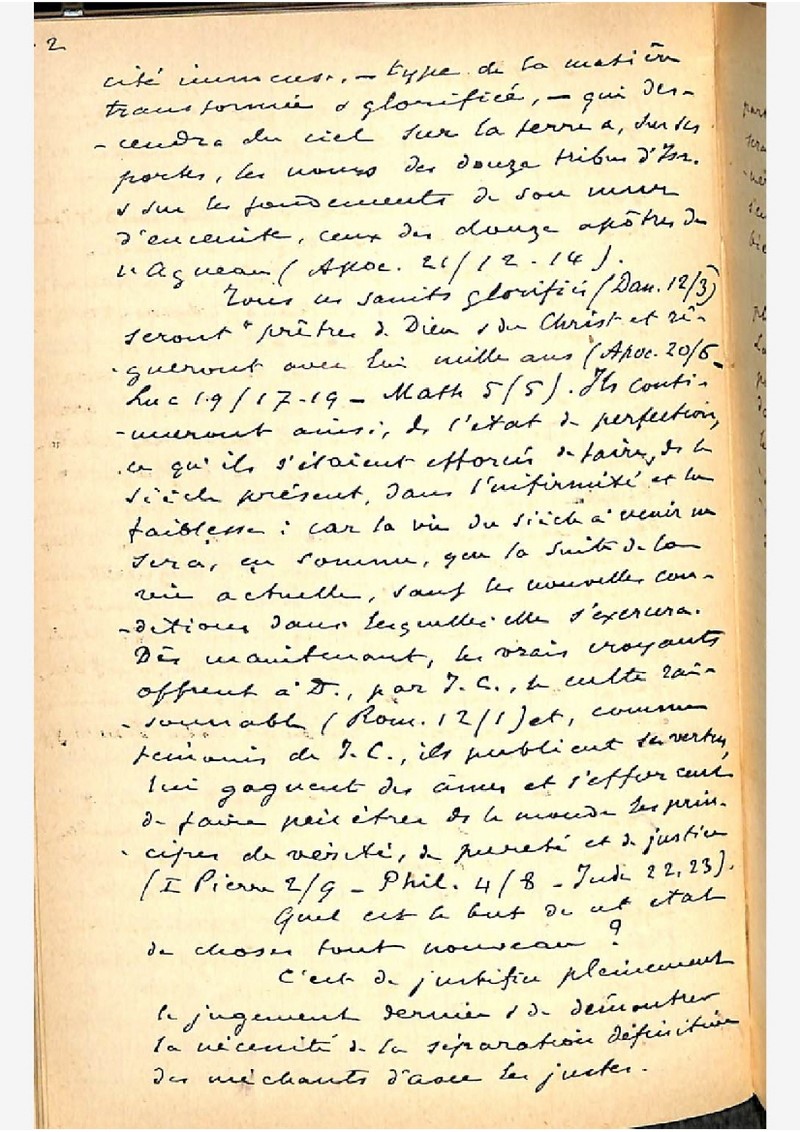 2
cité immense, – type de la matière
transformée & glorifiée, – qui des-
-cendra du ciel sur la terre a, sur ses
portes, les noms des douze tribus d'Isr.
& sur les fondements de son mur
d'enceinte, ceux des douze apôtres de
l'Agneau (Apoc. 21/12-14).
Tous ces saints glorifiés (Dan. 12/3)
seront "prêtres de Dieu & du Christ et rè-
-gneront avec lui mille ans (Apoc. 20/6 –
Luc 19/17-19 – Math 5/5). Ils conti-
-nueront ainsi, ds l'état de perfection,
ce qu'ils s'étaient efforcés de faire, ds le
siècle présent, dans l'infirmité et la
faiblesse : car la vie du siècle à venir ne
sera, en somme, que la suite de la
vie actuelle, sauf les nouvelles con-
-ditions dans lesquelles elle s'exercera.
Dès maintenant, les vrais croyants
offrent à D., par J. C., le culte rai-
-sonnable (Rom. 12/1) et, comme
témoins de J. C., ils publient ses vertus,
lui gagnent des âmes et s'efforcent
de faire pénétrer ds le monde les prin-
-cipes de vérité, de pureté et de justice
(I Pierre 2/9 – Phil. 4/8 – Jude 22, 23).
Quel est le but de cet état
de choses tout nouveau ?
C'est de justifier pleinement
le jugement dernier & de démontrer
la nécessité de la séparation définitive
des méchants d'avec les justes.